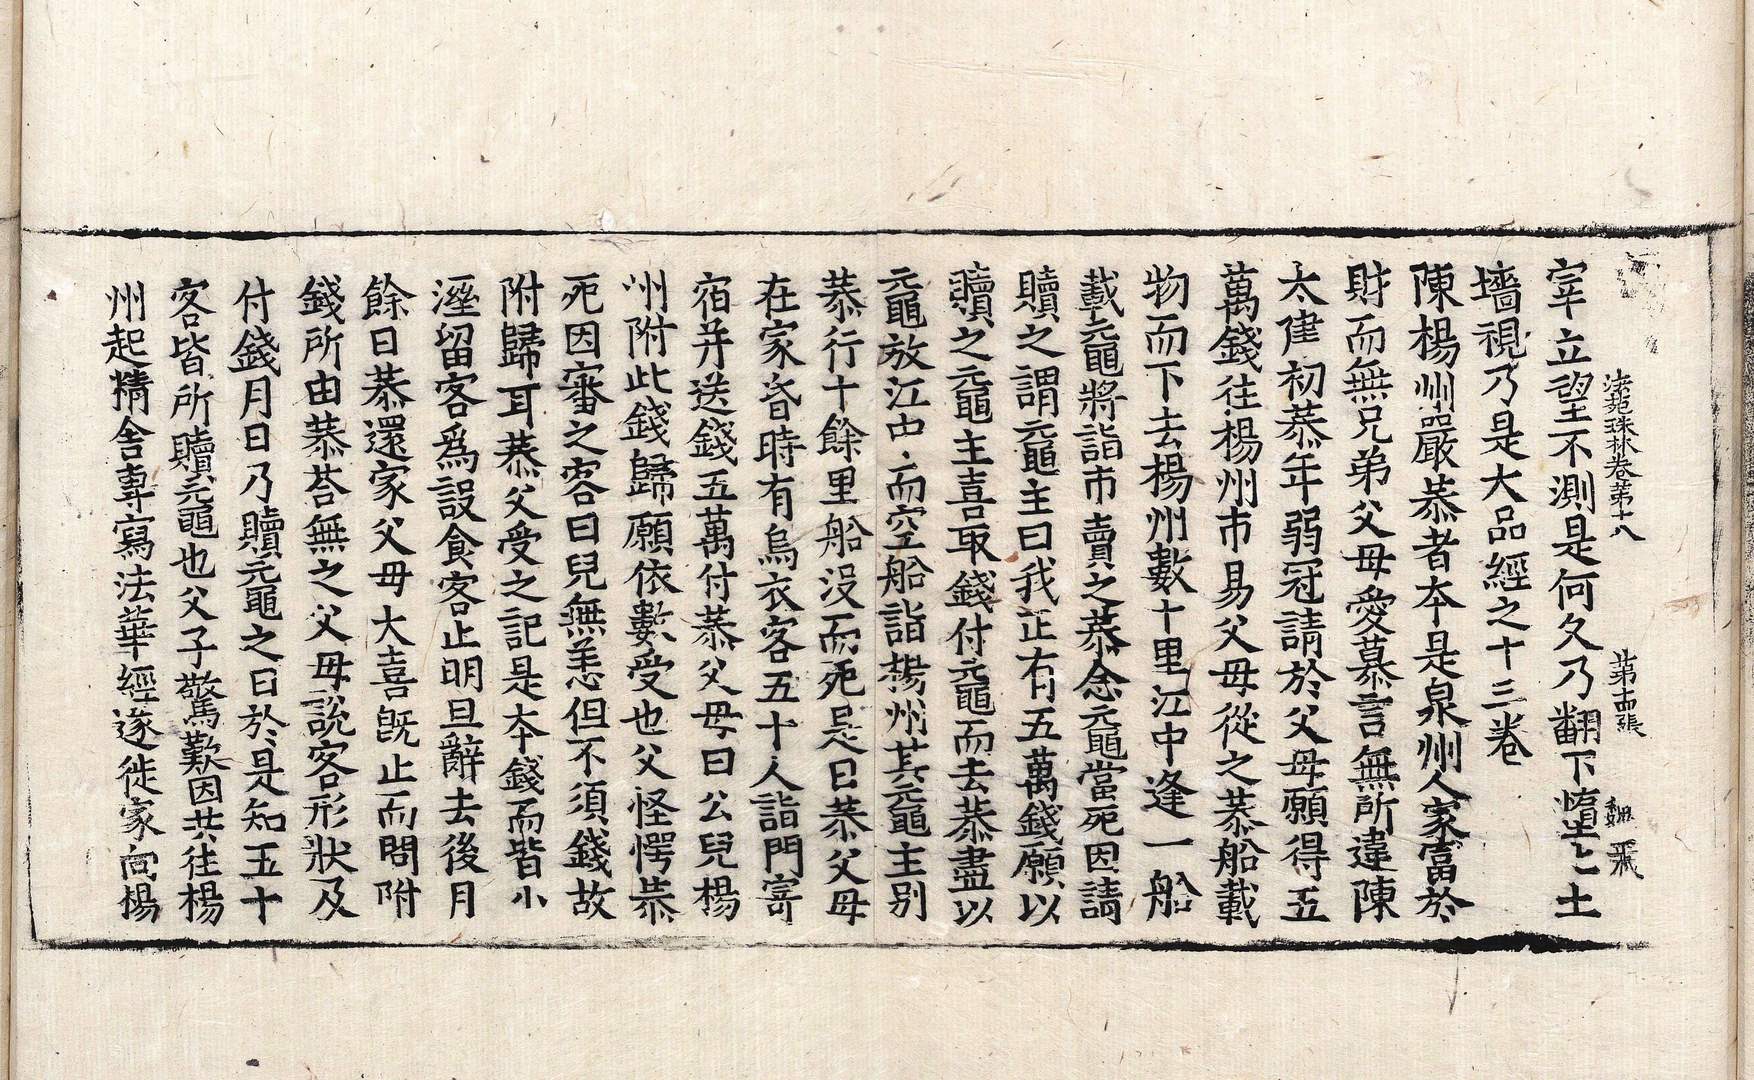 法苑珠林卷第十八 第十四張
宰立望不測是何久乃翻下墮土土
墻視乃是大品經之十三卷
陳楊州嚴恭者本是泉州人家富於
財而無兄弟父母愛慕言無所違陳
太建初恭年弱冠請於父母願得五
萬錢往楊州市易父母從之恭船載
物而下去楊州數十里江中逢一船
載黿將詣市賣之恭念黿當死因請
贖之謂黿主曰我正有五萬錢願以
贖之黿主喜取錢付黿而去恭盡以
黿放江中而空船詣楊州其黿主別
恭行十餘里船沒而死是日恭父母
在家昏時有烏衣客五十人詣門寄
宿并送錢五萬付恭父母曰公兒楊
州附此錢歸願依數受也父怪愕恭
死因審之客曰兒無恙但不須錢故
附歸耳恭父受之記是本錢而皆小
溼留客為設食客止明旦辭去後月
餘日恭還家父母大喜旣止而問附
錢所由恭荅無之父母說客形狀及
付錢月日乃贖黿之日於是知五十
客皆所贖黿也父子驚歎因共往楊
州起精舍專寫法華經遂徙家向楊